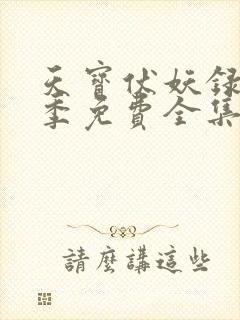 天寶伏妖録
季免費全集
請麼講這些